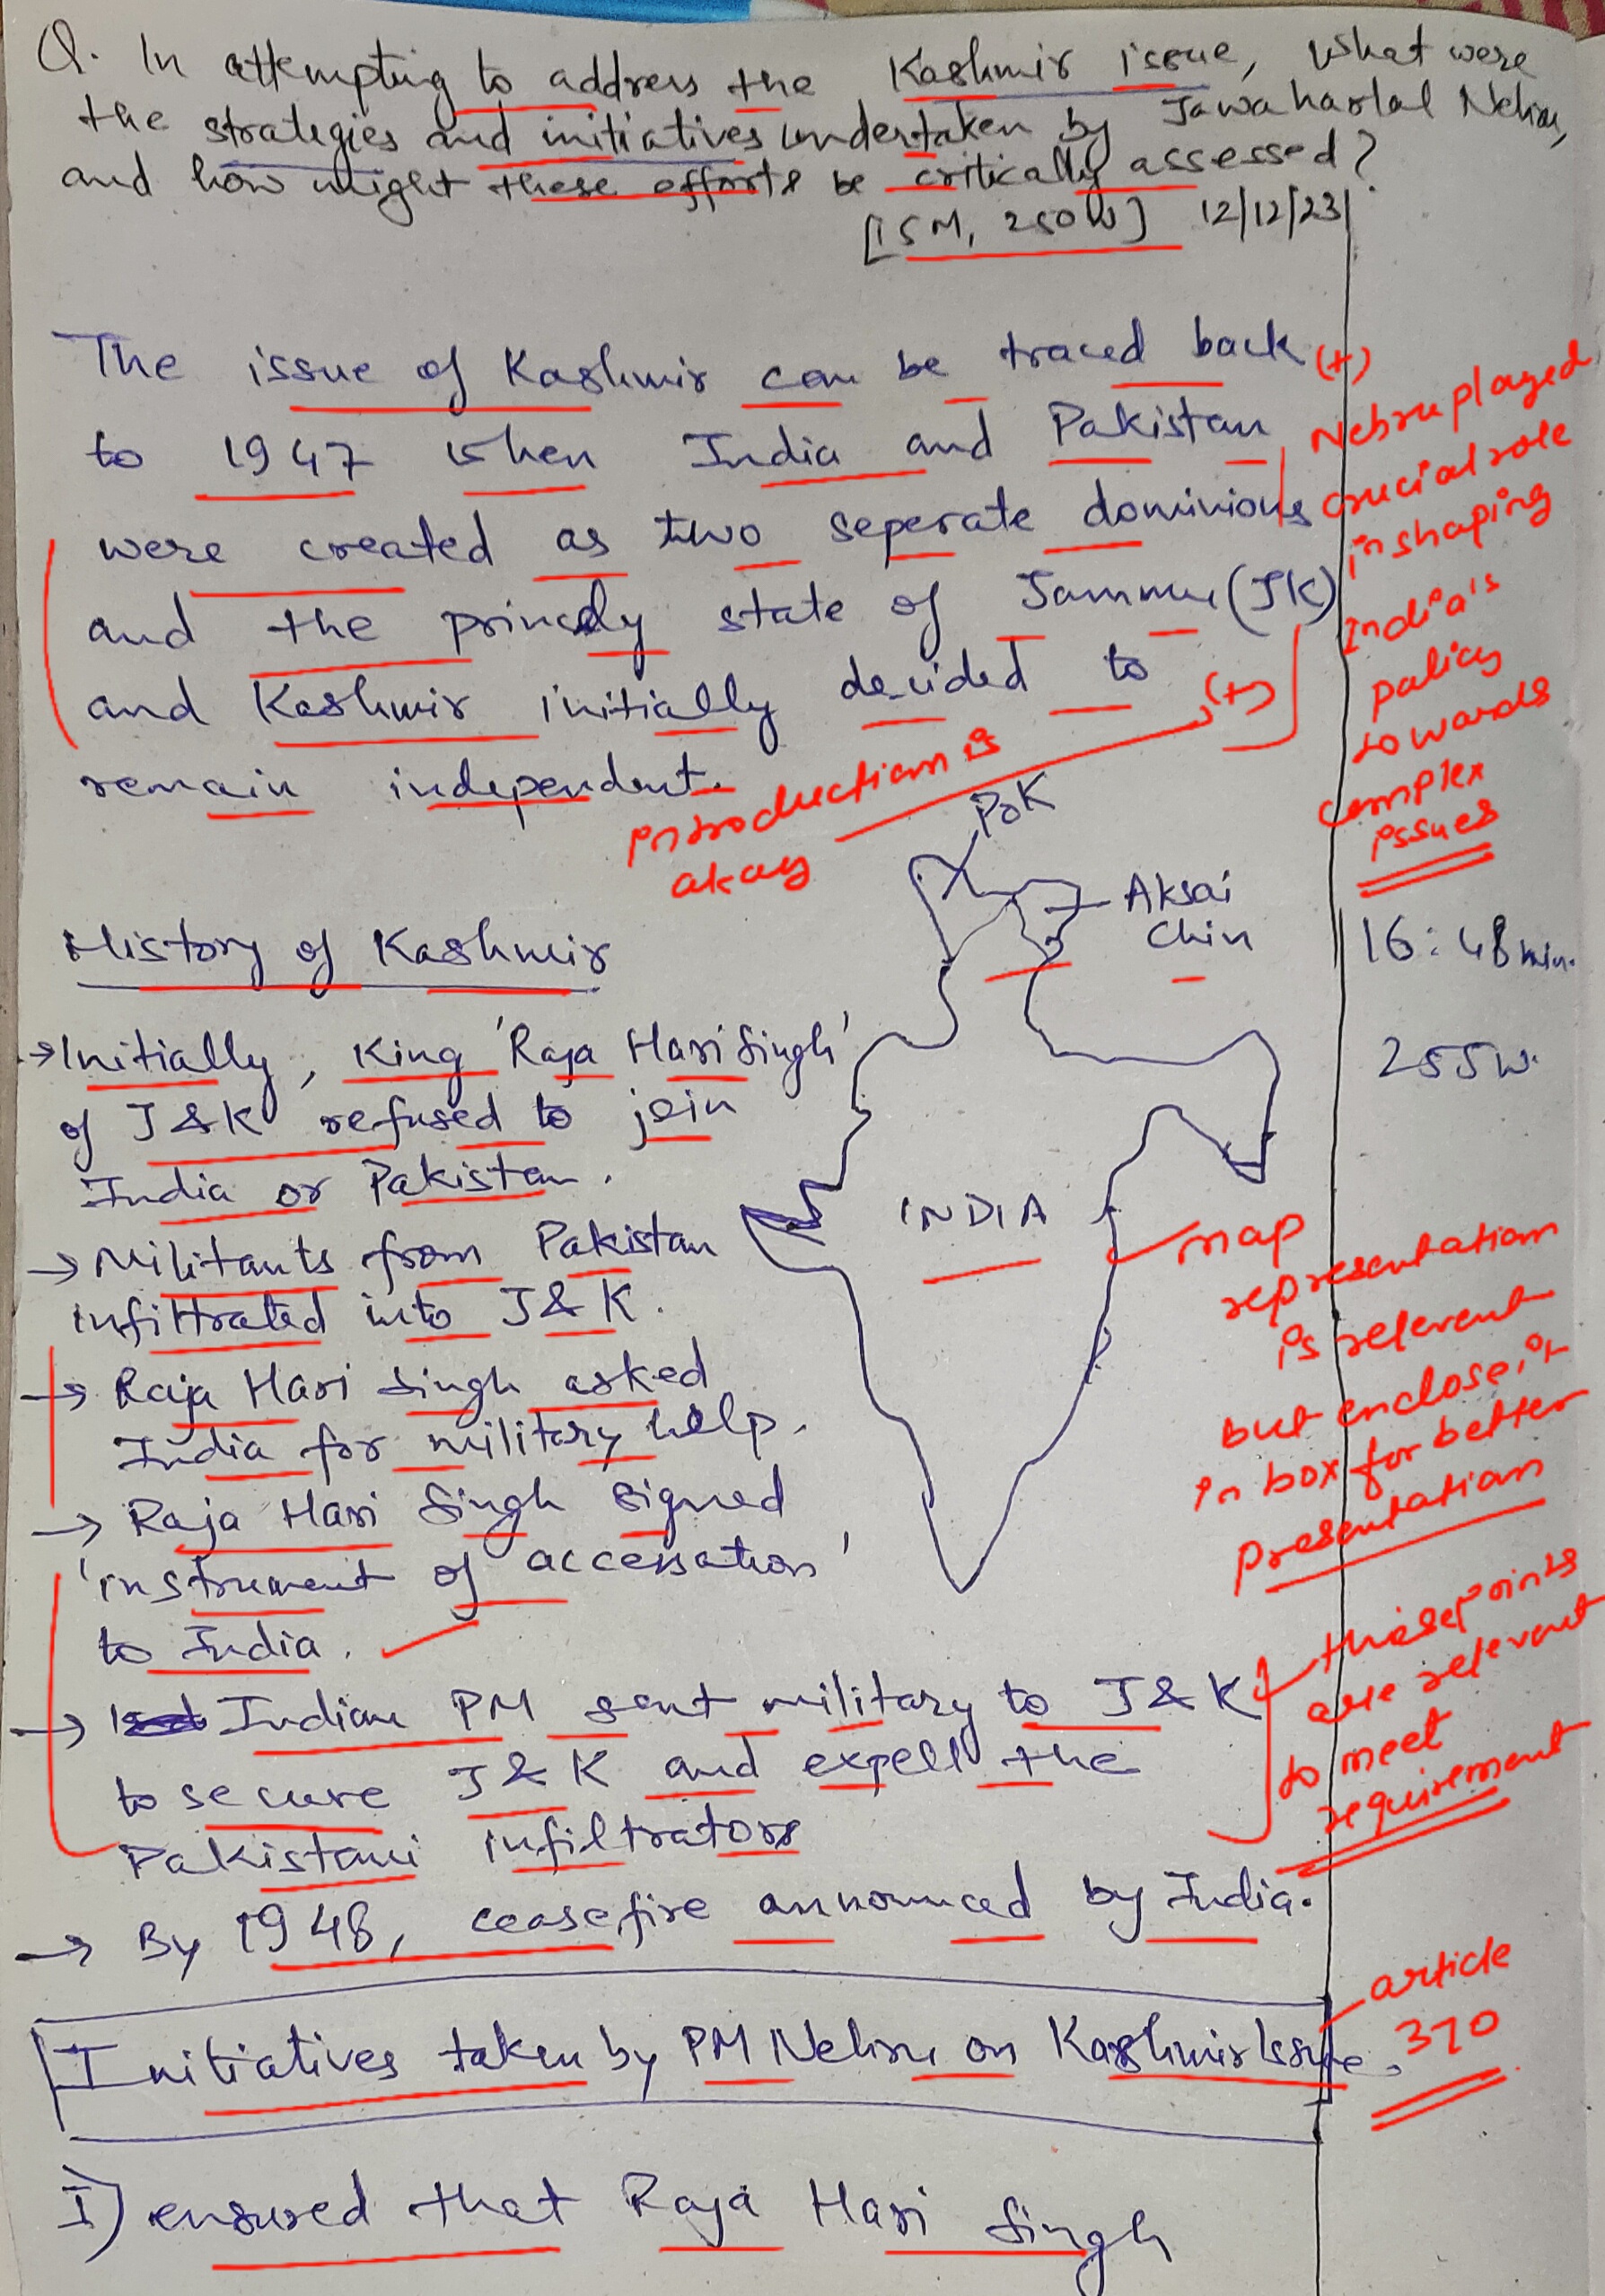 Q. In attempting to address the Kashmir issue, what were
the strategies and initiatives undertaken by Jawaharlal Nehru,
and how might these efforts be critically assessed?
[15M, 250W] 12/12/23
The issue of Kashmir can be traced back
to 1947 when India and Pakistan
were created as two seperate dominions
and the princely state of Jammu (JK)
and Kashmir initially decided to
remain independent.
(+)
Nehru played
crucial role
in shaping
India's
policy
towards
complex
issues
(+)
introduction is
okay
PoK
Aksai
Chin
INDIA
16:48 min.
255W.
History of Kashmir
→ Initially, King 'Raja Hari Singh'
of J&K refused to join
India or Pakistan.
→ Militants from Pakistan
infiltrated into J&K.
→ Raja Hari Singh asked
India for military help.
→ Raja Hari Singh signed
'instrument of accessation'
to India.
→ Indian PM sent military to J&K
to secure J&K and expell the
Pakistani infiltrators
→ By 1948, ceasefire announced by India.
map
representation
is relevent
but enclose it
in box for better
presentation
these points
are relevant
to meet
requirement
Initiatives taken by PM Nehru on Kashmir Issue.
article
370
I) ensured that Raja Hari Singh